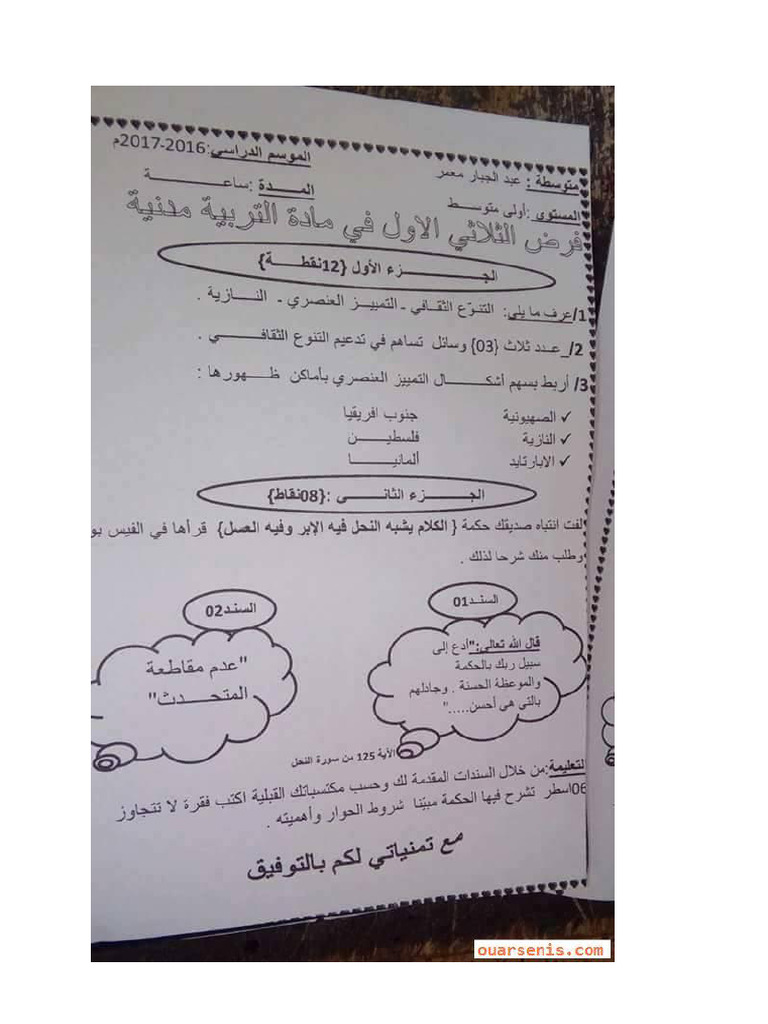 متوسطة : عبد الجبار معمر
الموسم الدراسي:2016-2017م
المستوى :أولى متوسـط
المـدة :ساعـــــة
فرض الثلاثي الاول في مادة التربية مدنية
الجـــــزء الأول {12نقطـة}
1/عرف ما يلي: التنوّع الثقـافي ـ التمييـز العنصري ـ النــازية .
2/_عـدد ثلاث {03} وسائل تساهم في تدعيم التنوع الثقافـــي .
3/ أربط بسهم أشكــــال التمييز العنصري بأماكن ظـــهورها :
✓ الصهيونية جنوب افريقيا
✓ النازية فلسطيـــن
✓ الابارتايد ألمانيـــا
الجـــزء الثانـــى :{08نقاط}
لفت انتباه صديقك حكمة { الكلام يشبه النحل فيه الإبر وفيه العسل} قرأها في الفيس بو
وطلب منك شرحا لذلك .
السند01
قال الله تعالى:"أدع إلى
سبيل ربك بالحكمة
والموعظة الحسنة . وجادلهم
بالتي هي أحسن....."
الآية 125 من سورة النحل
السند02
"عدم مقاطعة
المتحـــدث"
التعليمة:من خلال السندات المقدمة لك وحسب مكتسباتك القبلية اكتب فقرة لا تتجاوز
06اسطر تشرح فيها الحكمة مبيّنا شروط الحوار وأهميته .
مع تمنياتي لكم بالتوفيق
ouarsenis.com